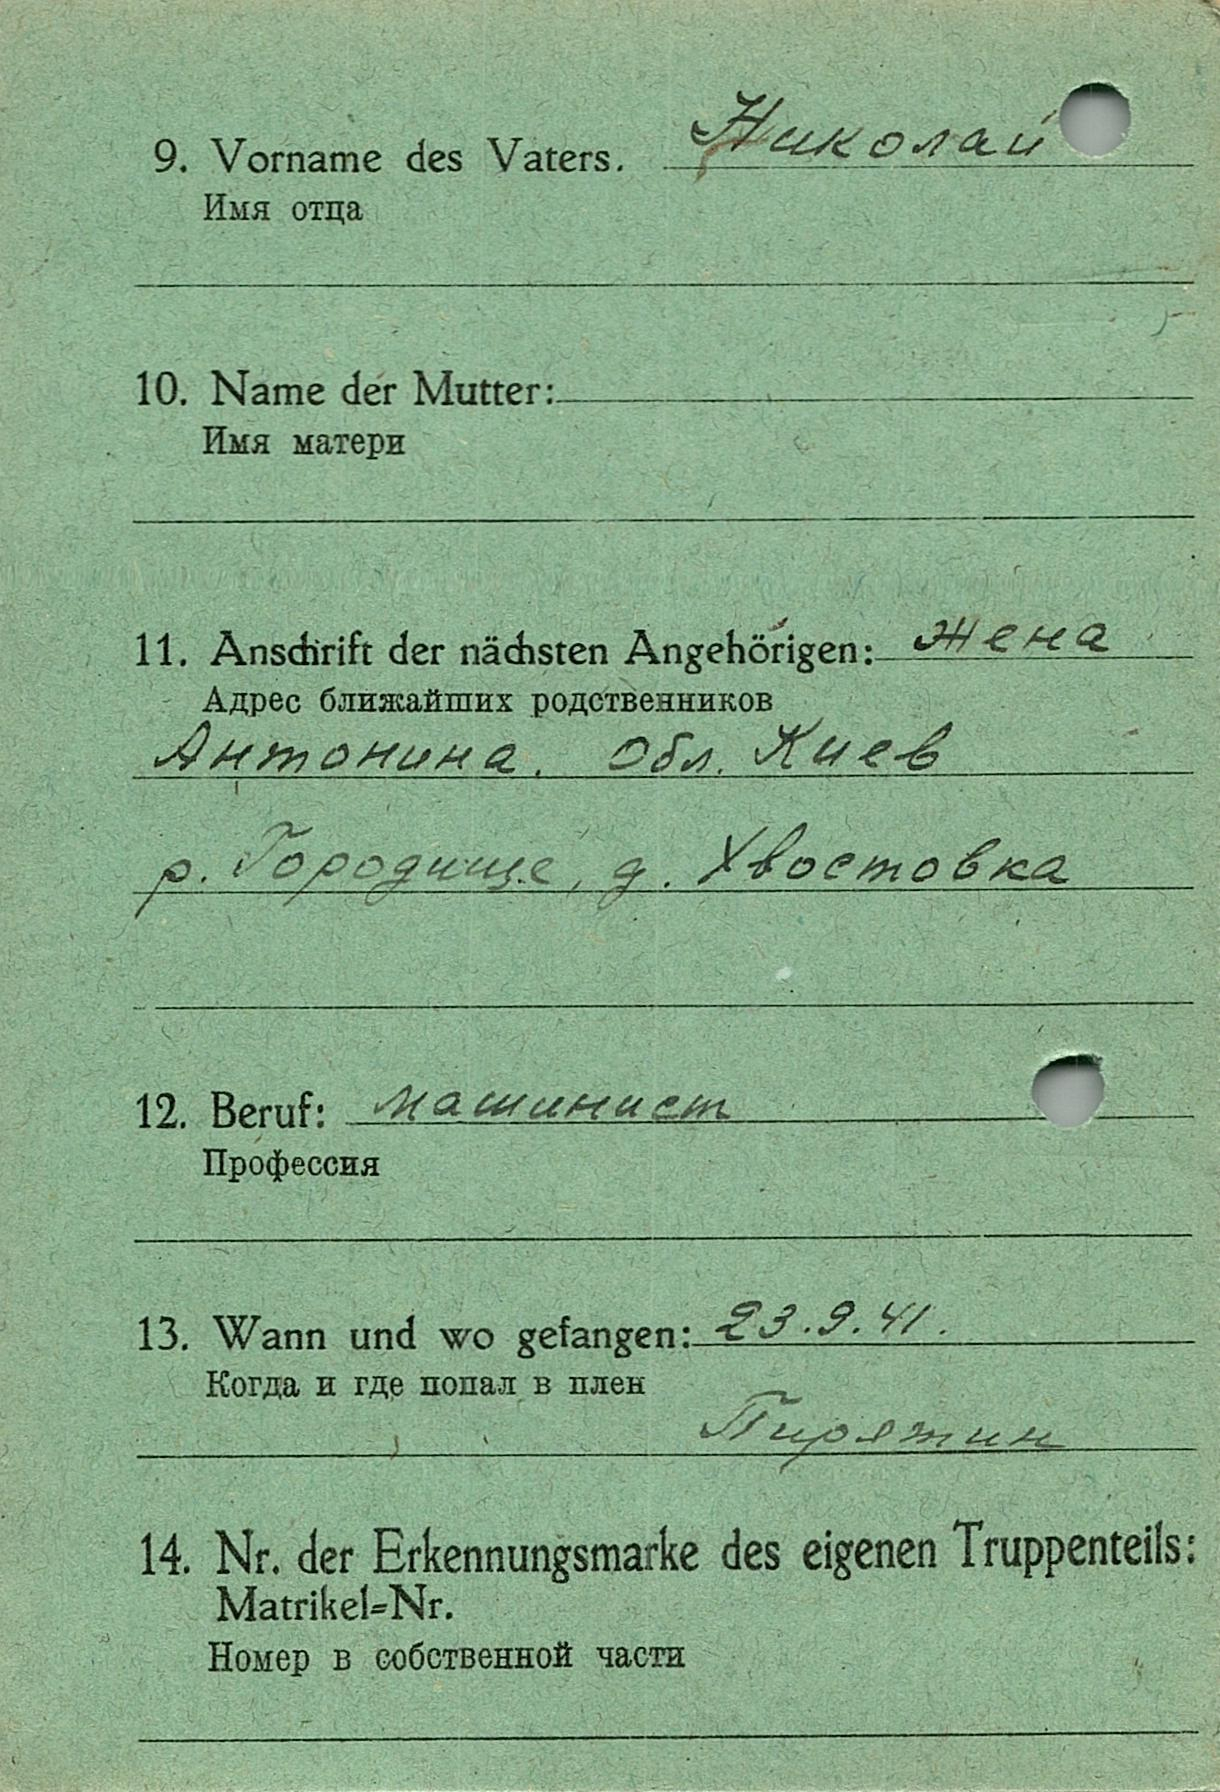 9. Vorname des Vaters. Николай
Имя отца
10. Name der Mutter:
Имя матери
11. Anschrift der nächsten Angehörigen: жена
Адрес ближайших родственников
Антонина. Обл. Киев
р. Городище, д. Хвостовка
12. Beruf: машинист
Профессия
13. Wann und wo gefangen: 23.9.41.
Когда и где попал в плен
Пирятин
14. Nr. der Erkennungsmarke des eigenen Truppenteils:
Matrikel=Nr.
Номер в собственной части